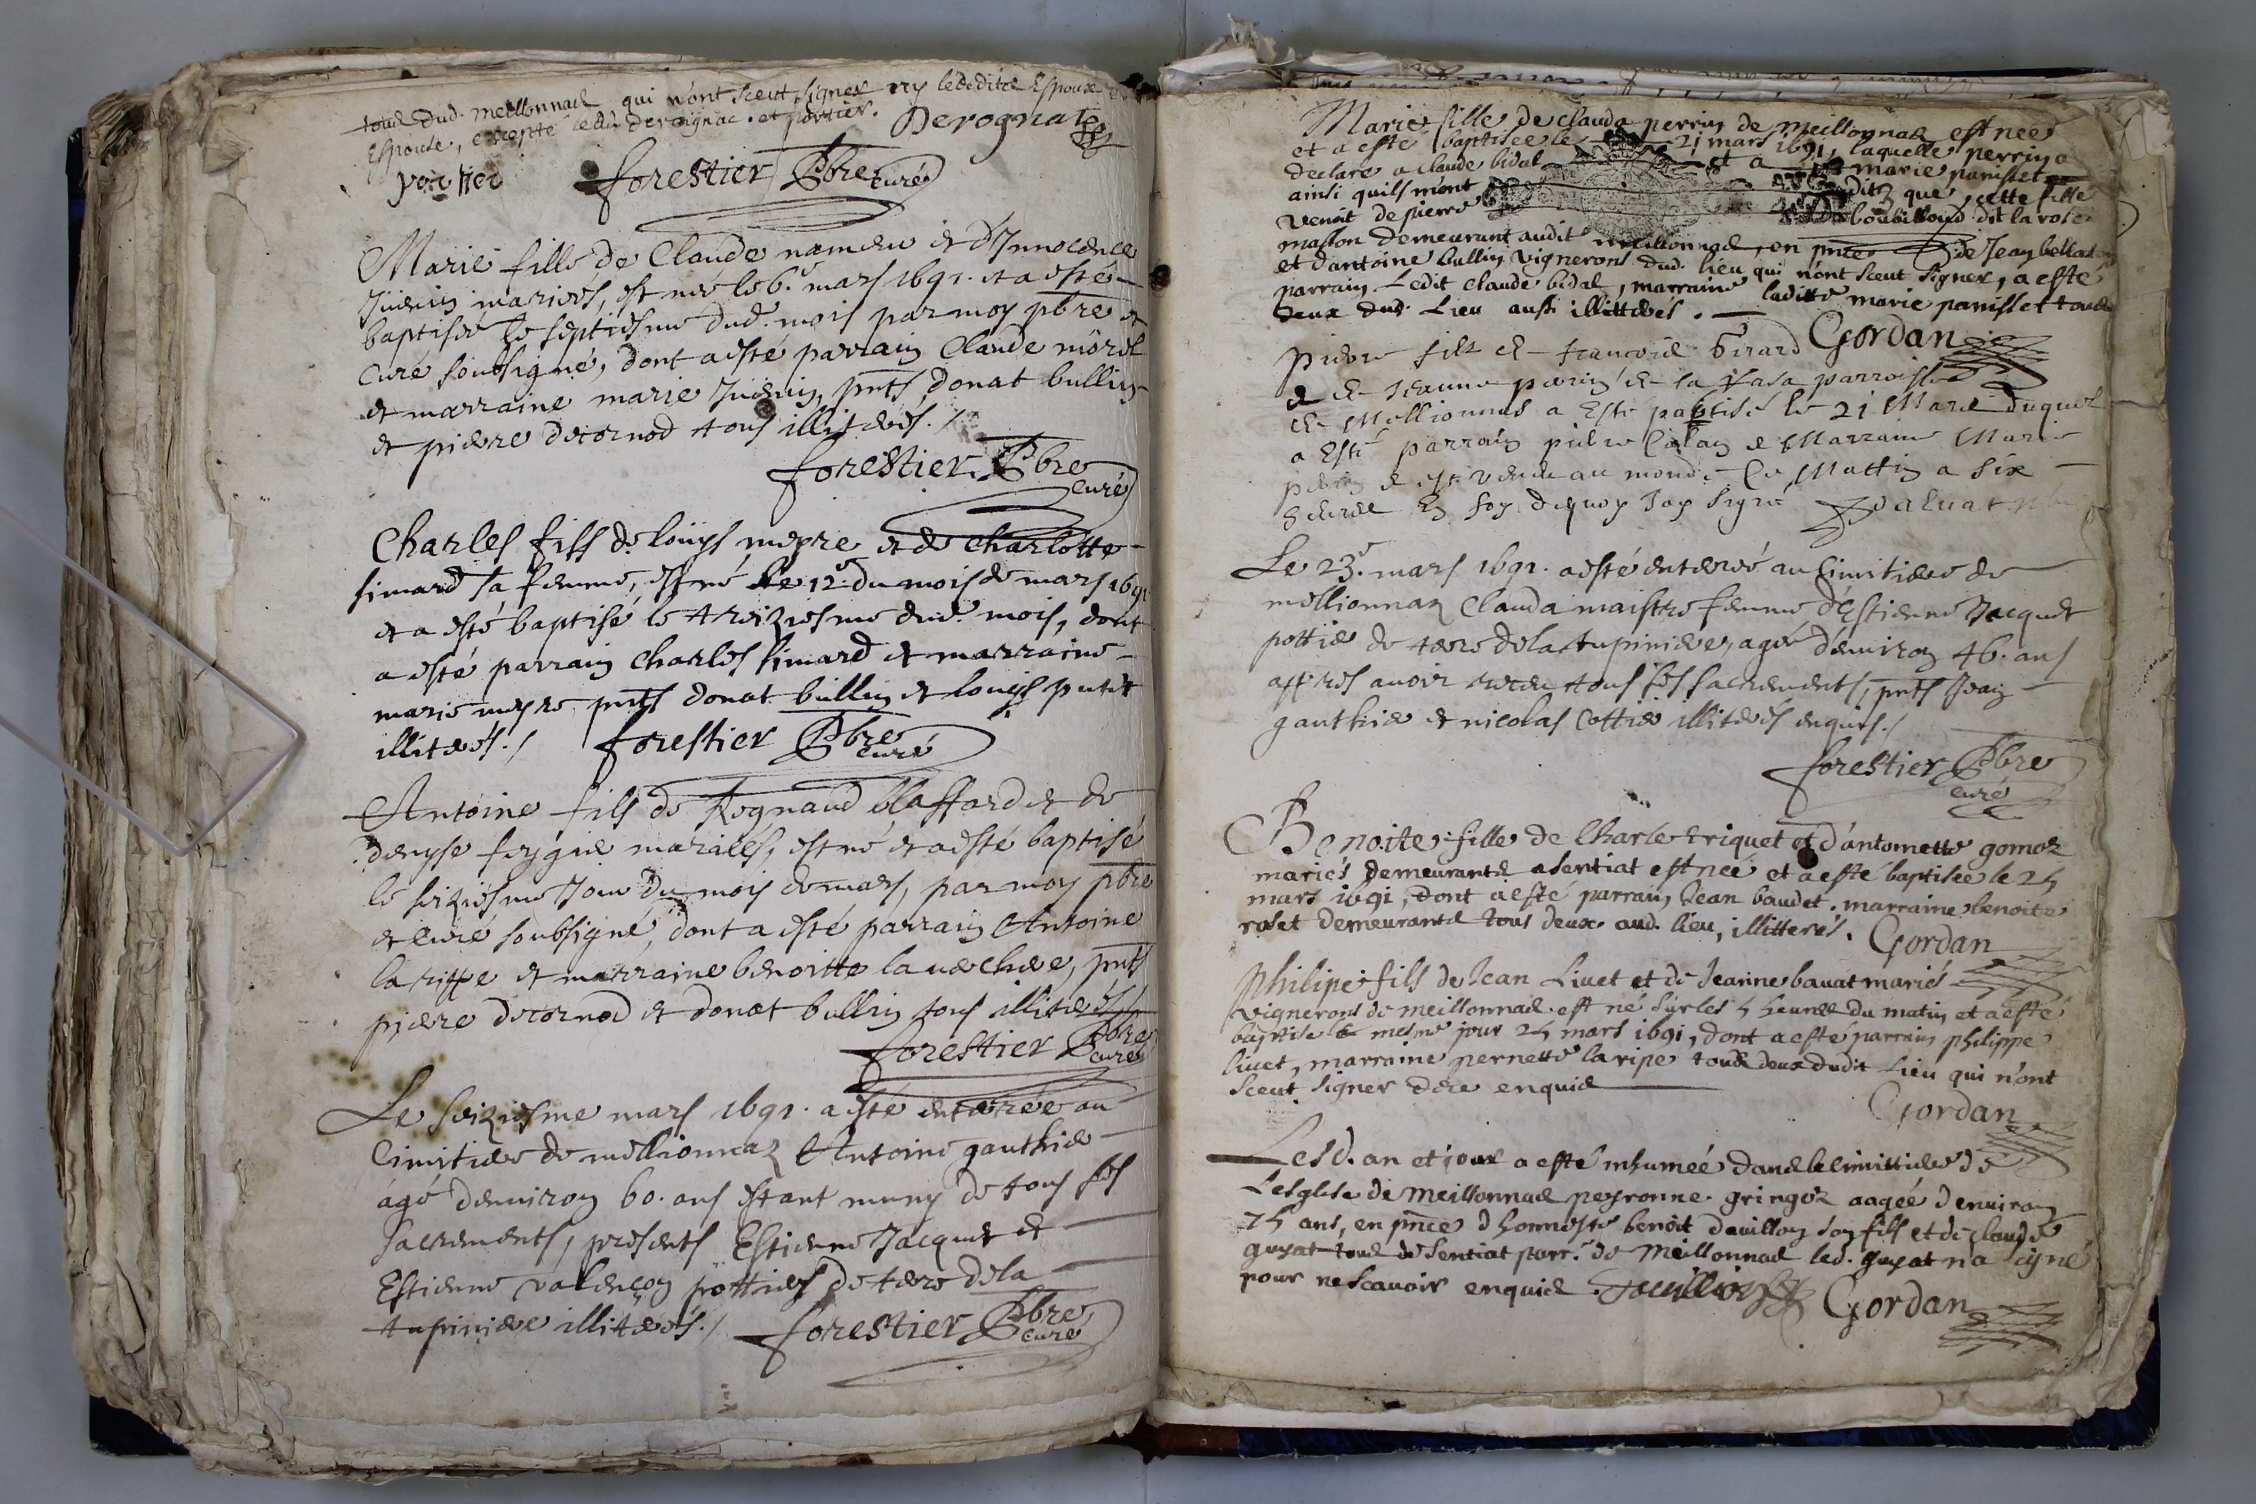 tous dud. meillonnas qui n'ont sceut signer ny lesdditz Espoux
Espouse, excepté led. derognac. et portier.
Derognat
portier forestier Pbre curé
Marie fille de Claude nameu et d'Innocence
Juenin mariés, est née le 6e mars 1691. et a esté
baptisée le septiesme dud. mois par moy pbre et
curé soubsigné, dont a esté parrain Claude morel
et marraine marie Juenin, pnts donat bullin
et pierre decornod tous illiterés./
forestier Pbre
curé
Charles fils de louys meyre et de Charlotte
simard sa femme, est né le 12e du mois de mars 1691
et a esté baptisé le treiziesme dud. mois, dont
a esté parrain Charles simard et marraine
marie meyre pnts donat bullin et louys petit
illiterés./ forestier Pbre
curé
Antoine fils de Regnaud blaffard et de
denyse mariés, est né et a esté baptisé
le seiziesme Jour du mois de mars, par moy pbre
et curé soubsigné, dont a esté parrain Antoine
la rippe et marraine benoitte la vercheere, pnts
pierre decornod et donat bullin tous illiterés
forestier Pbre
curé
Le seiziesme mars 1691. a esté enterrée au
Cimitiere de mellionnaz Antoine gauthier
âgé denviron 60. ans estant muny de tous ses
sacrements, presents Estienne Jacquet et
Estienne valençon pottiers de terre de la
tupiniere illiterés./ forestier Pbre
curé
Marie fille de clauda perrin de meillonnas est nee
et a esté baptisee le 21 mars 1691, laquelle perrin a
declaré a claude bidal et a marie panisset
ainsi quils m'ont ditz que cette fille
venoit de pierre loubilloud dit la rose
masson demeurant audit meillonnas, en pnce de Jean bellat
et d'antoine bullin vignerons dud. lieu qui n'ont sceut signer, a esté
parrain Ledit claude bidal, marraine laditte marie panisset tous
deux dud. Lieu aussi illitterés. Gordan
pierre filz de françois Girard
et de Jeanne perin de la parroisse
de Mellionnas a Esté baptisé le 21 Mars duquel
a Esté parrain pierre Calan et Marraine Marie
perin et est venu au monde Ce Mattin a six
heures En foy dequoy Jay signé
Le 23e. mars 1691. a esté enterré au Cimitiere de
mellionnaz Clauda maistre femme d'Estienne Jacquet
pottier de terre de la tupiniere, agée d'environ 46. ans
apres avoir receu tous ses sacrements, pnts Jean
gauthier et nicolas Cottier illiterés enquis./
forestier Pbre
curé
Benoite fille de Charle triquet et d'antoinette gomoz
mariés demeurants a sentiat est née et a esté baptisée le 25
mars 1691, dont a esté parrain Jean baudet. marraine benoite
roset demeurants tous deux aud. lieu, illitterés. Gordan
Philipe fils de Jean Livet et de Jeanne bavat mariés
vignerons de meillonnas est né sur les 5 heures du matin et a esté
baptisé le mesme jour 25 mars 1691, dont a esté parrain philippe
livet, marraine pernette la ripe tous deux dudit Lieu qui n'ont
sceut signer de ce enquis
Gordan
Lesd. an et jour a esté inhumée dans le cimittiere de
Lesglise de Meillonnas peyronne gringoz aagée d'environ
75 ans, en pnce d'honneste benoit devillon son fils et de claude
guyat tous de sentiat parr. de Meillonnas led. guyat n'a signé
pour ne scavoir enquis. Gordan